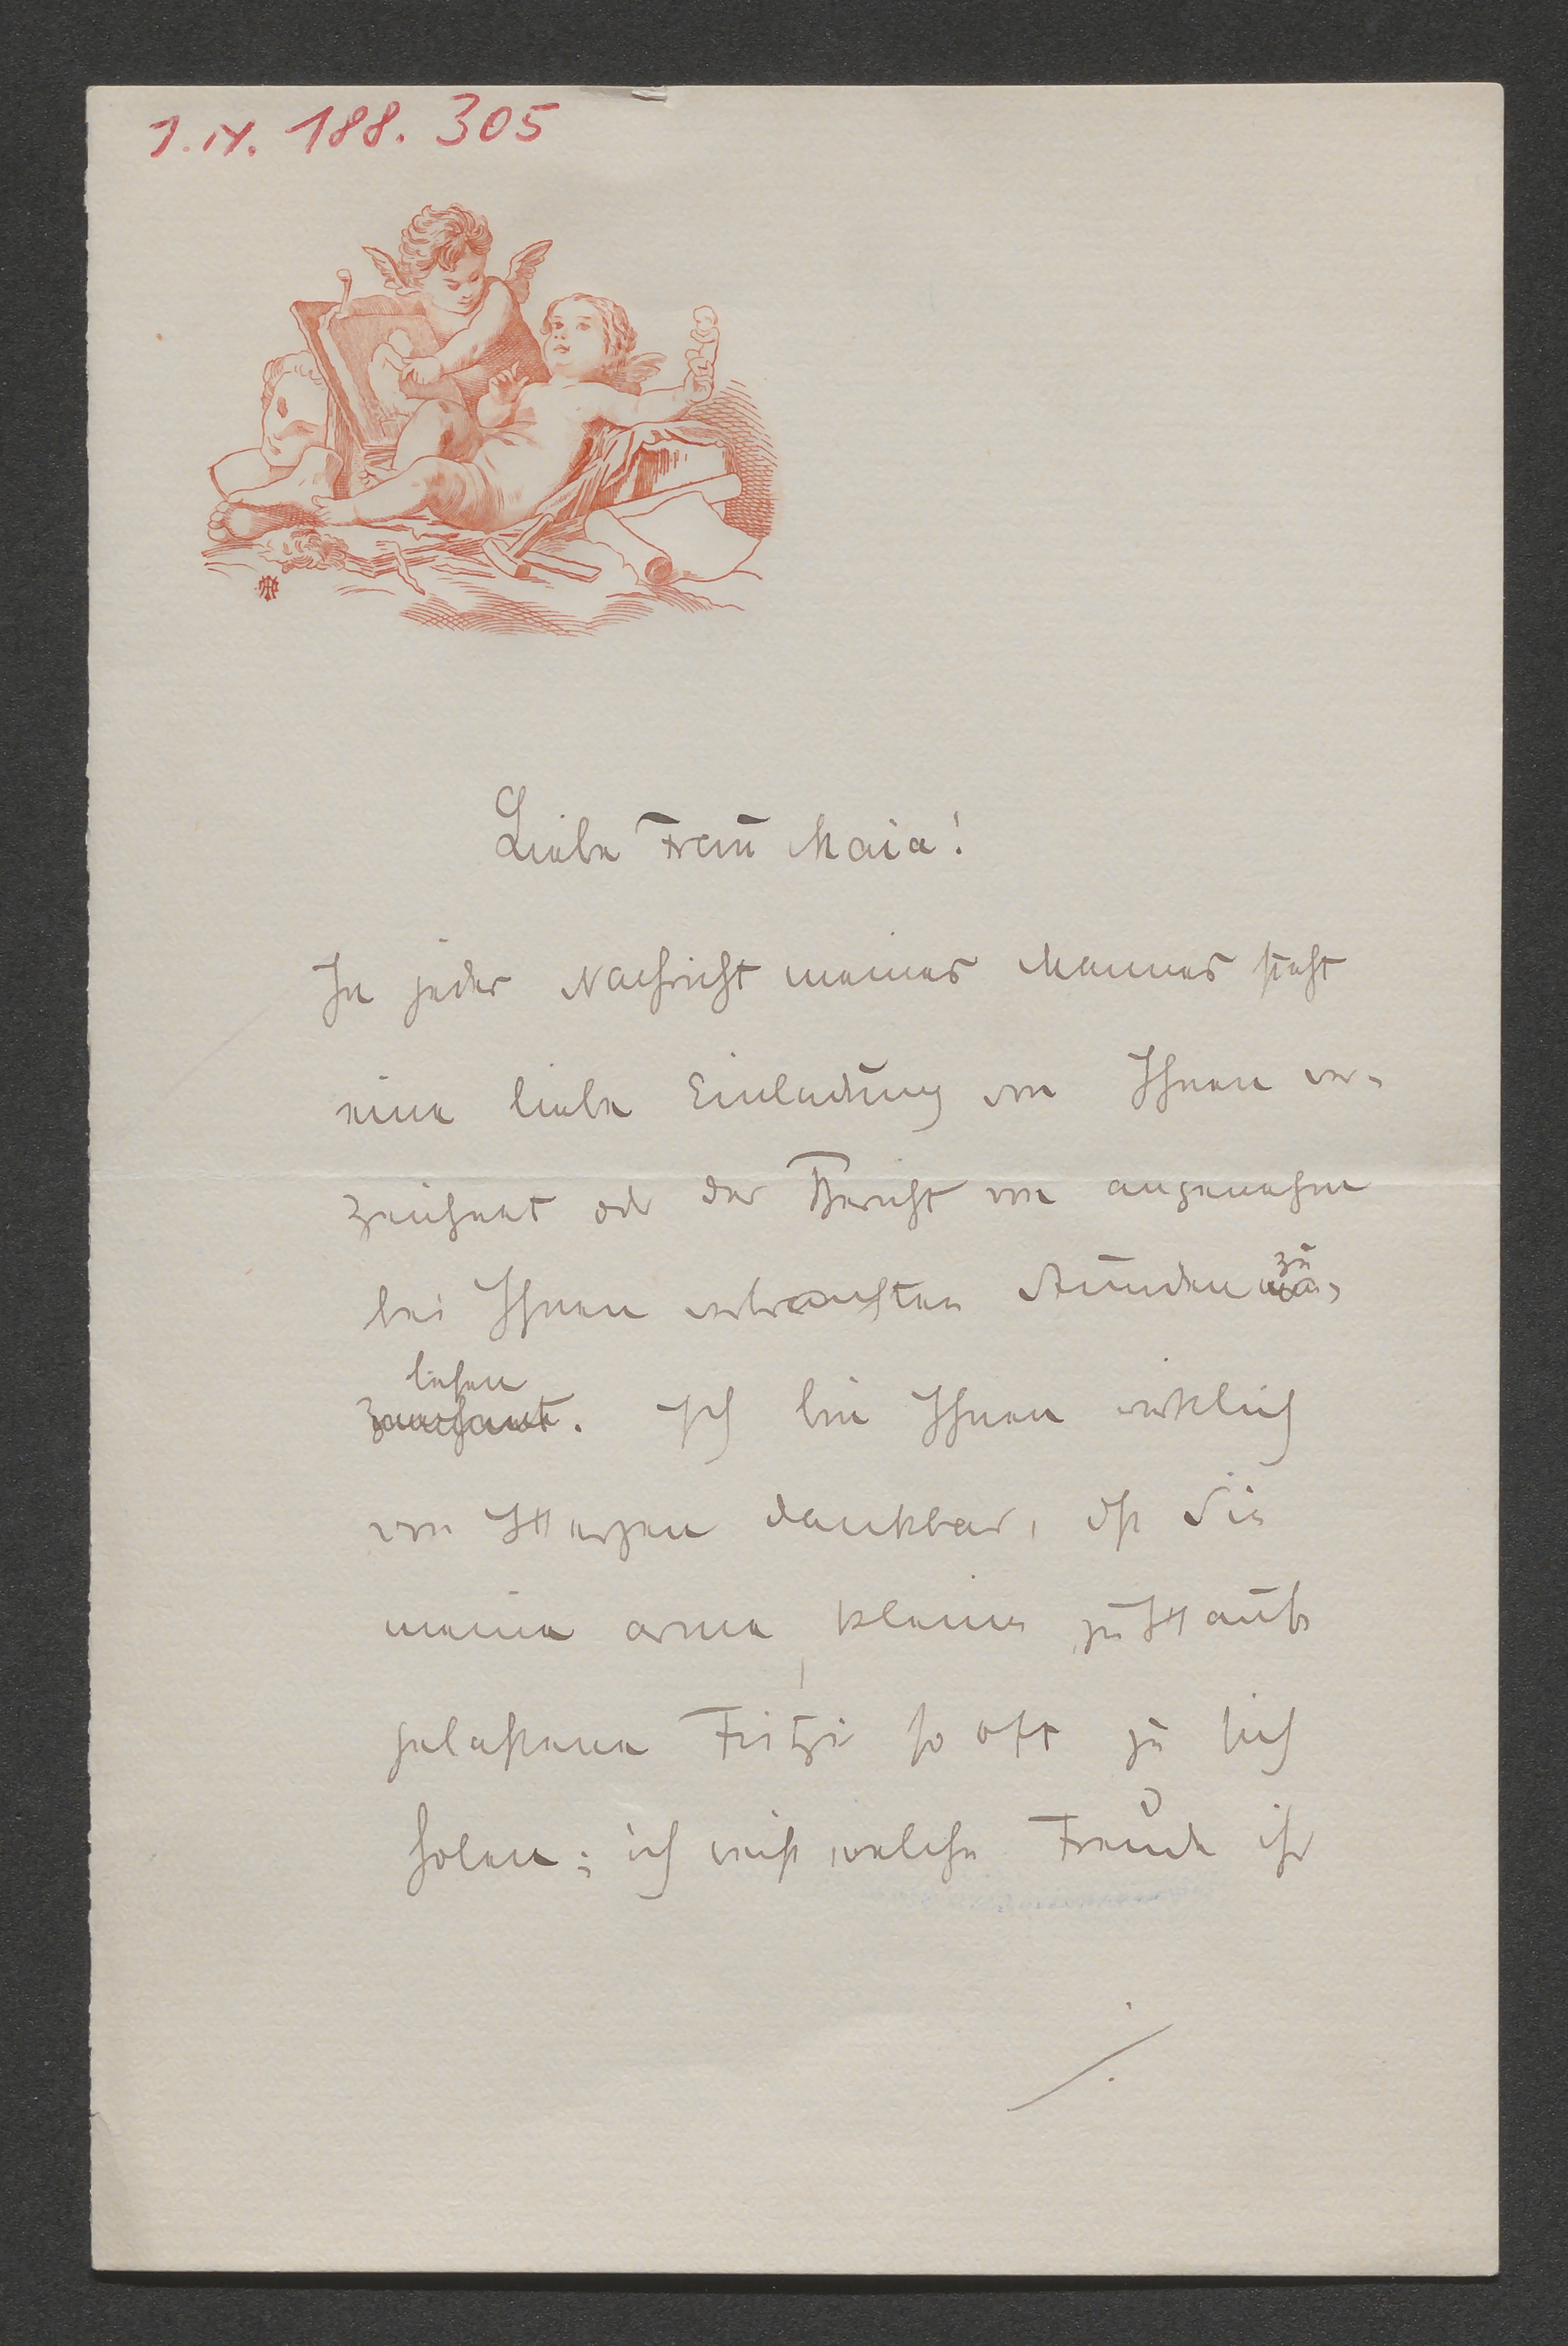 J.N. 188.305
Liebe Frau Maia!
In jeder Nachricht meines Mannes steht
eine liebe Einladung von Ihnen ver-
zeichnet od der Bericht von angenehm
bei Ihnen verbrachten Stunden zu
lesen
. Ich bin Ihnen wirklich
von Herzen dankbar, dß Sie
meine arme, kleine zu Hauß
gelaßene Fritzi so oft zu sich
holen; ich weiß, welche Freude ihr
./.